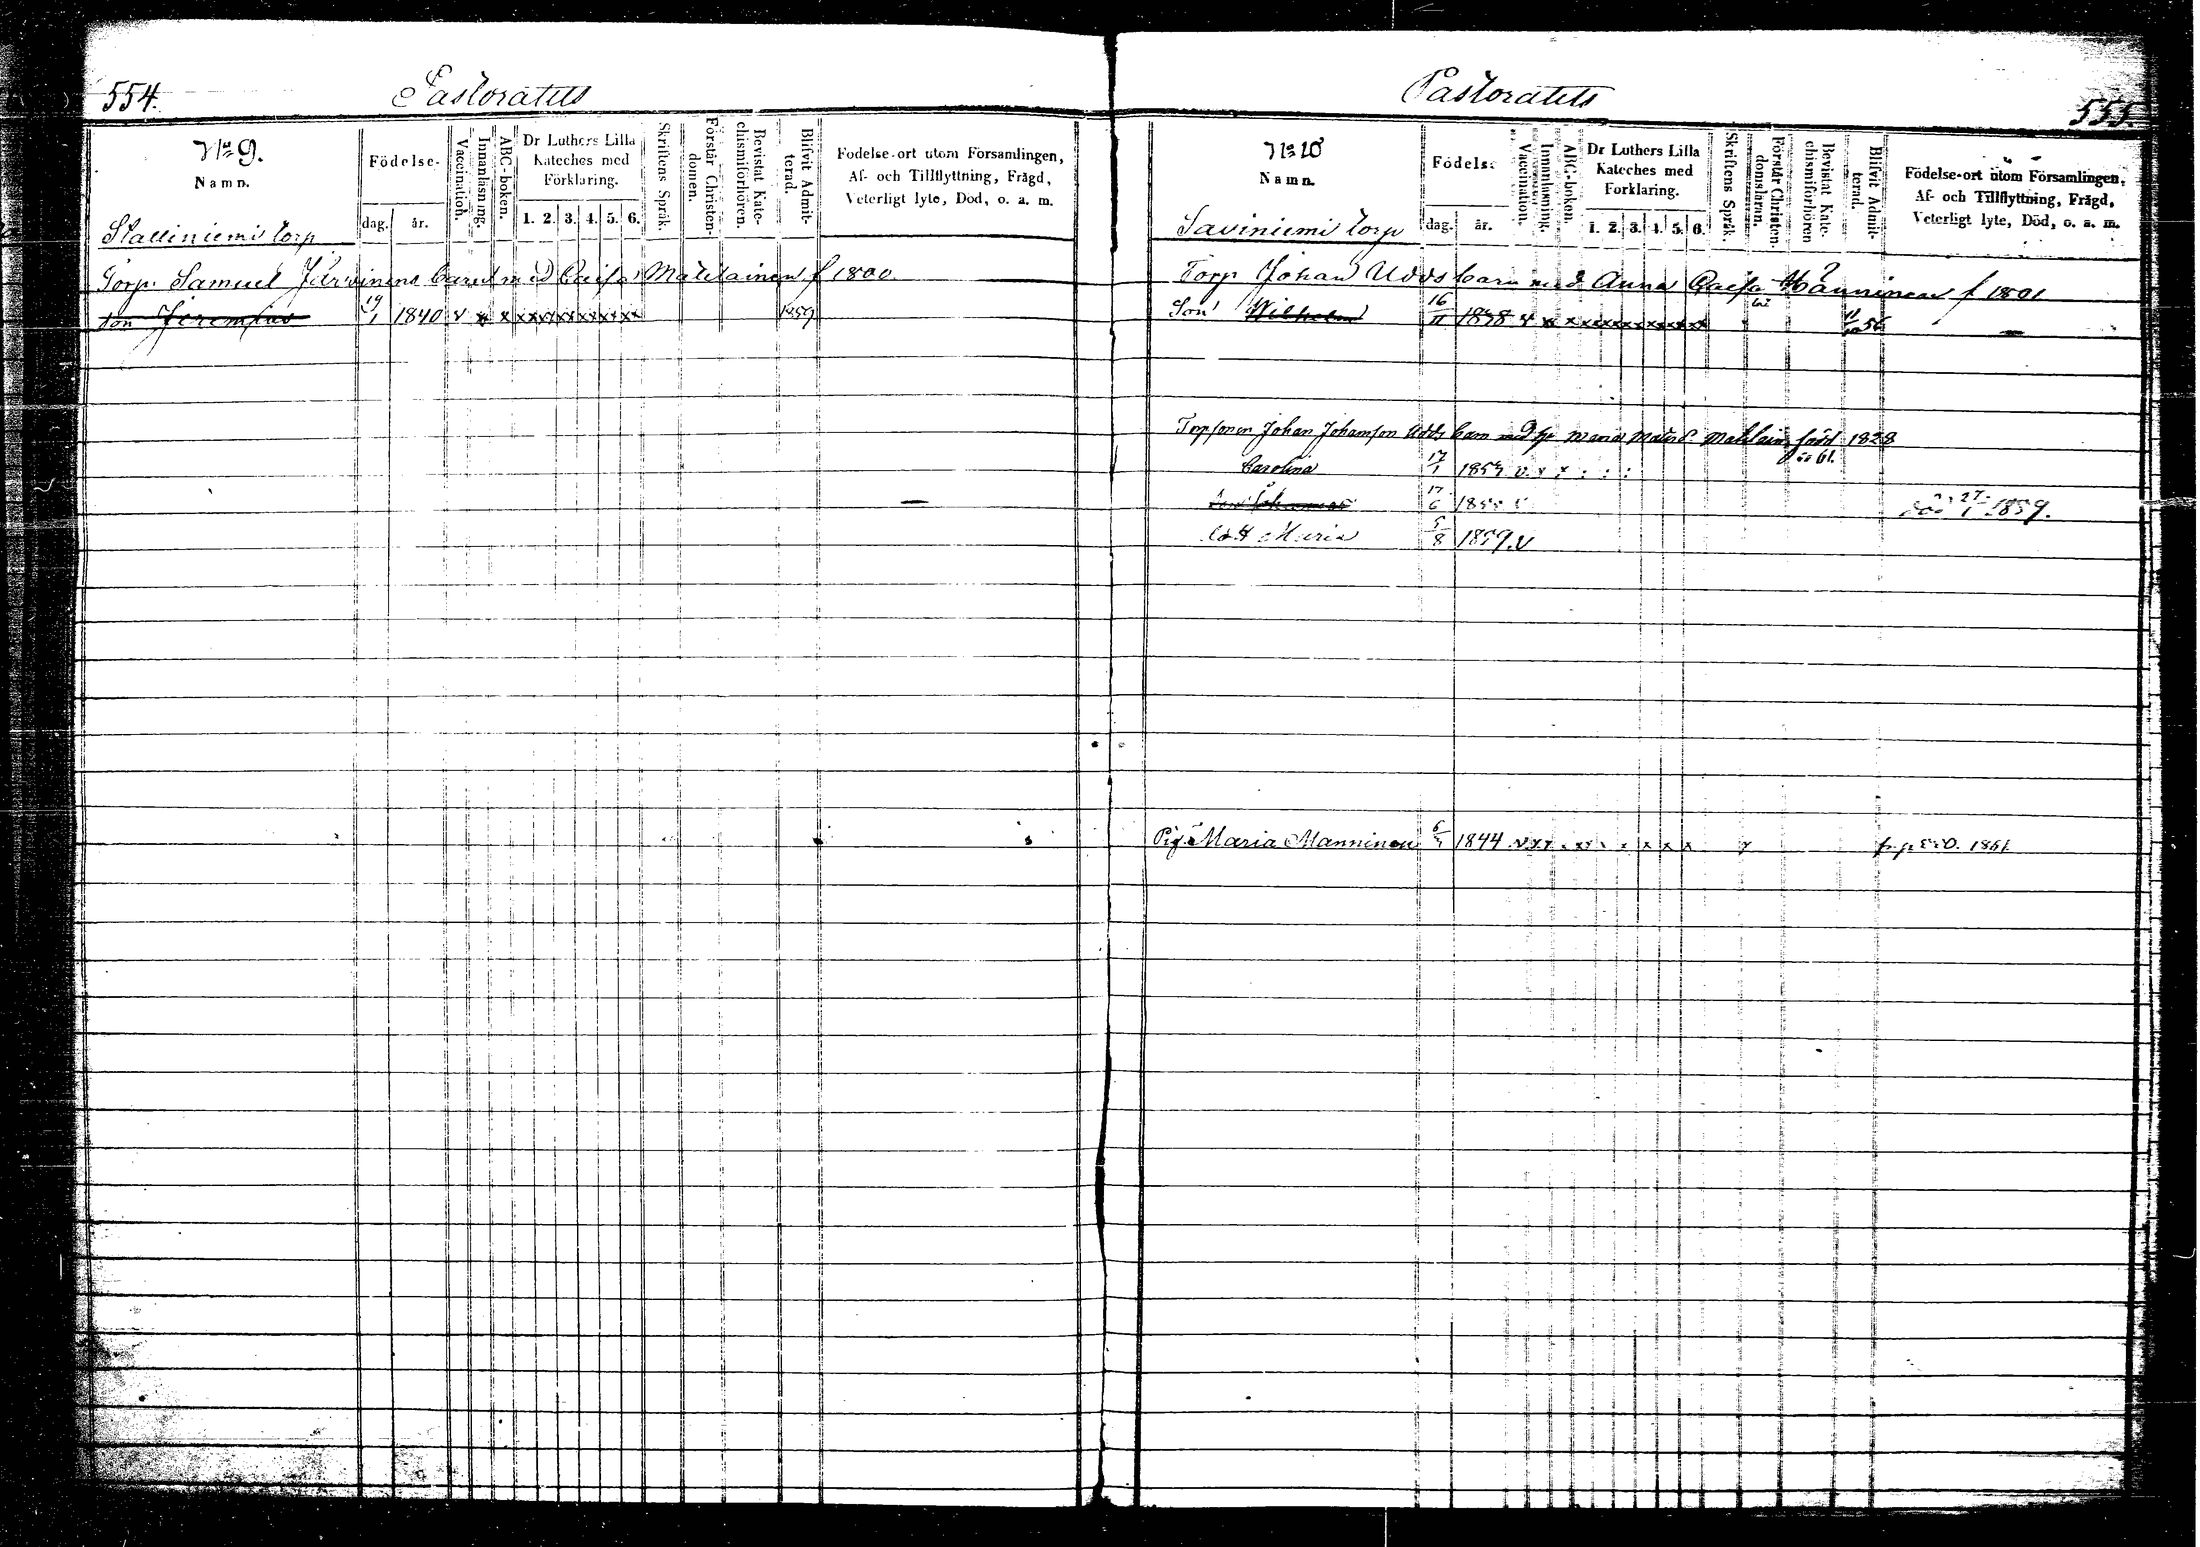 554.
Pastoratets
No 9.
Namn.
Födelse-
dag. år.
Vaccination.
Innanläsning.
ABC-boken.
Dr Luthers Lilla
Kateches med
Förklaring.
1. 2. 3. 4. 5. 6.
Skriftens Språk.
Förstår Christen-
domen.
Bevistat Kate-
chismiförhören.
Blifvit Admit-
terad.
Födelse-ort utom Församlingen,
Af- och Tillflyttning, Frägd,
Veterligt lyte, Död, o. a. m.
Stalliniemi torp
Torp. Samuel Järvinens barn med Caisa Matilainen f 1800.
son Jeremias 19/1 1840 v x x xxxxxxxxxxx 1859
Pastoratets
555.
No 10
Namn.
Födelse
dag. år.
Vaccination.
Innanläsning.
ABC-boken.
Dr Luthers Lilla
Kateches med
Förklaring.
1. 2. 3. 4. 5. 6.
Skriftens Språk.
Förstår Christen-
domsläran.
Bevistat Kate-
chismiförhören
Blifvit Admit-
terad.
Födelse-ort utom Församlingen,
Af- och Tillflyttning, Frägd,
Veterligt lyte, Död, o. a. m.
Saviniemi torp
Torp Johan Udds barn med Anna Caisa Manninen f 1801
Son Wilhelm 16/11 1838 v x x xxxxxxxxxxx 56
Torpsonen Johan Johansson Udds barn med Maria född 1828
Carolina 17/1 1854 v x x
17/6 1855 v död 27/1 1859.
Maria 5/8 1859. v
Pig. Maria Manninen 1844 v x x x x x x 1861